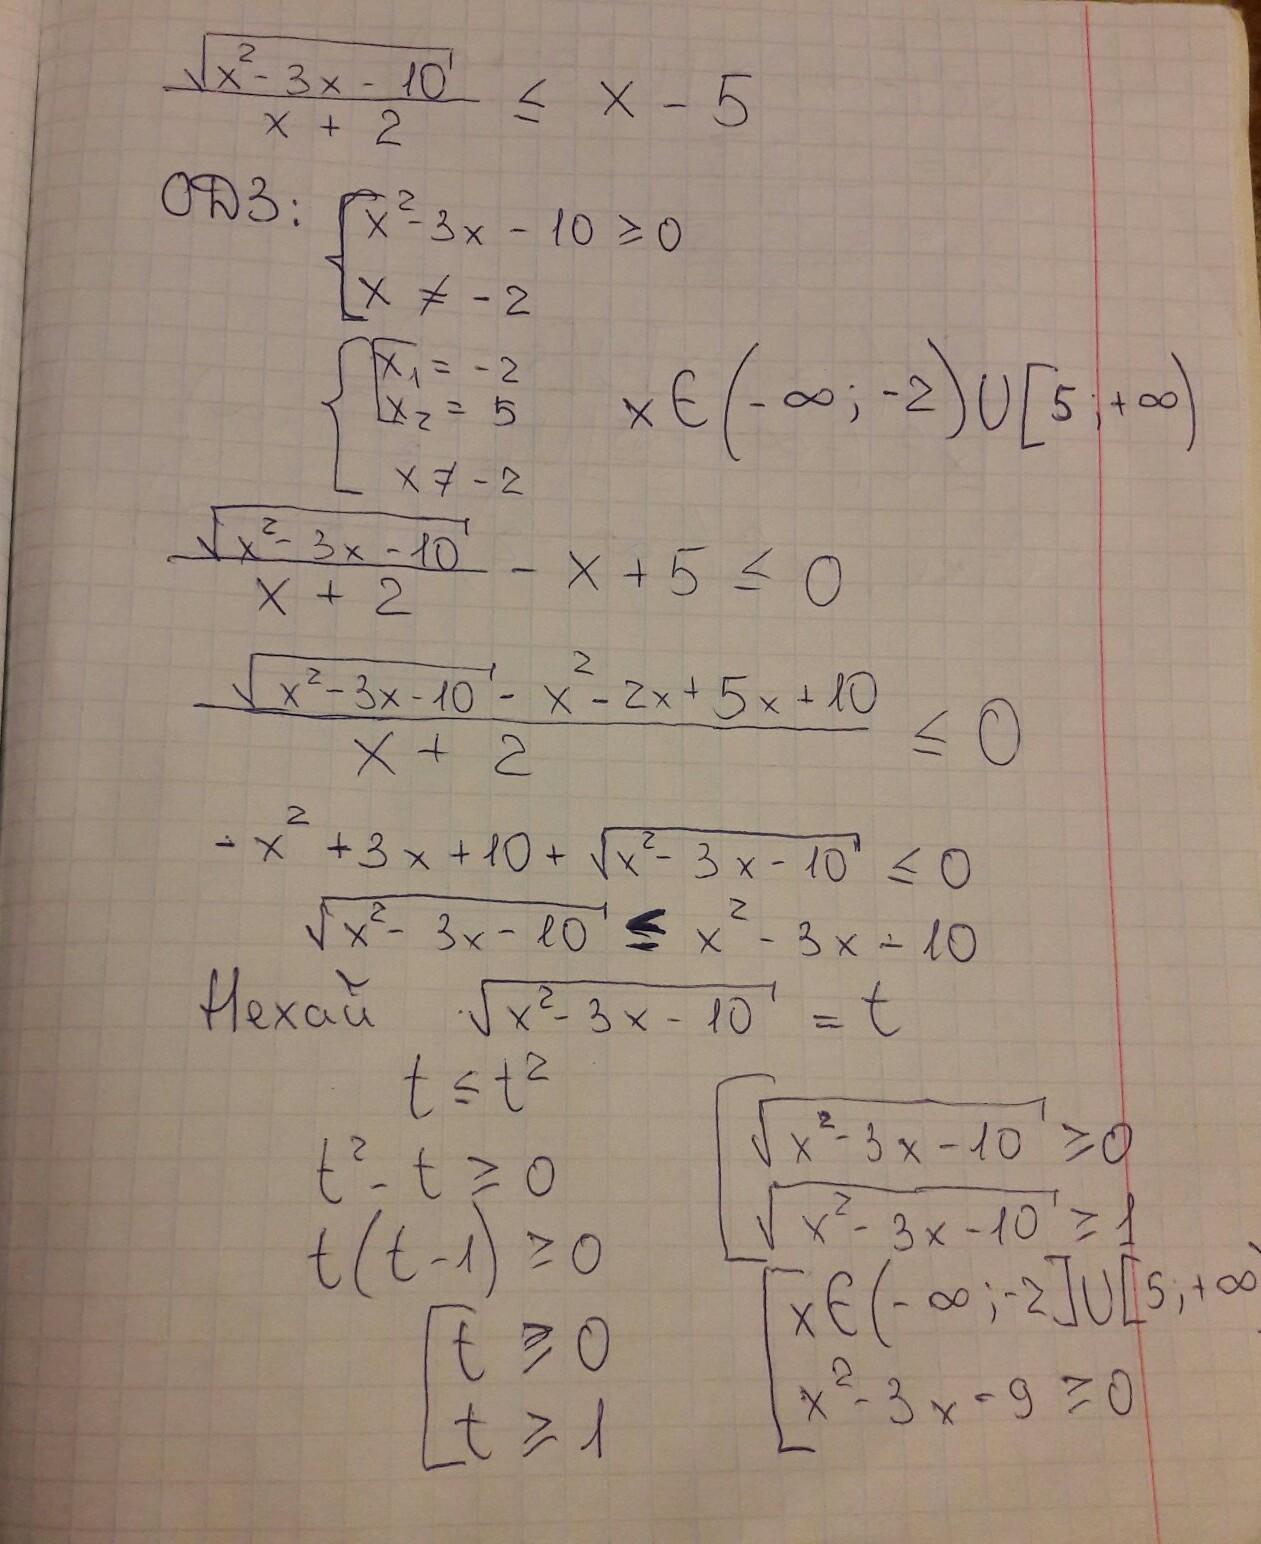 √(x² - 3x - 10) / (x + 2) ≤ x - 5
ОДЗ: { x² - 3x - 10 ≥ 0
x ≠ -2
{ [ x₁ = -2
x₂ = 5
x ≠ -2
x ∈ (-∞; -2) ∪ [5; +∞)
√(x² - 3x - 10) / (x + 2) - x + 5 ≤ 0
(√(x² - 3x - 10) - x² - 2x + 5x + 10) / (x + 2) ≤ 0
-x² + 3x + 10 + √(x² - 3x - 10) ≤ 0
√(x² - 3x - 10) ≤ x² - 3x - 10
Нехай √(x² - 3x - 10) = t
t ≤ t²
t² - t ≥ 0
t(t - 1) ≥ 0
[ t ≥ 0
t ≥ 1
[ √(x² - 3x - 10) ≥ 0
√(x² - 3x - 10) ≥ 1
[ x ∈ (-∞; -2] ∪ [5; +∞)
x² - 3x - 9 ≥ 0